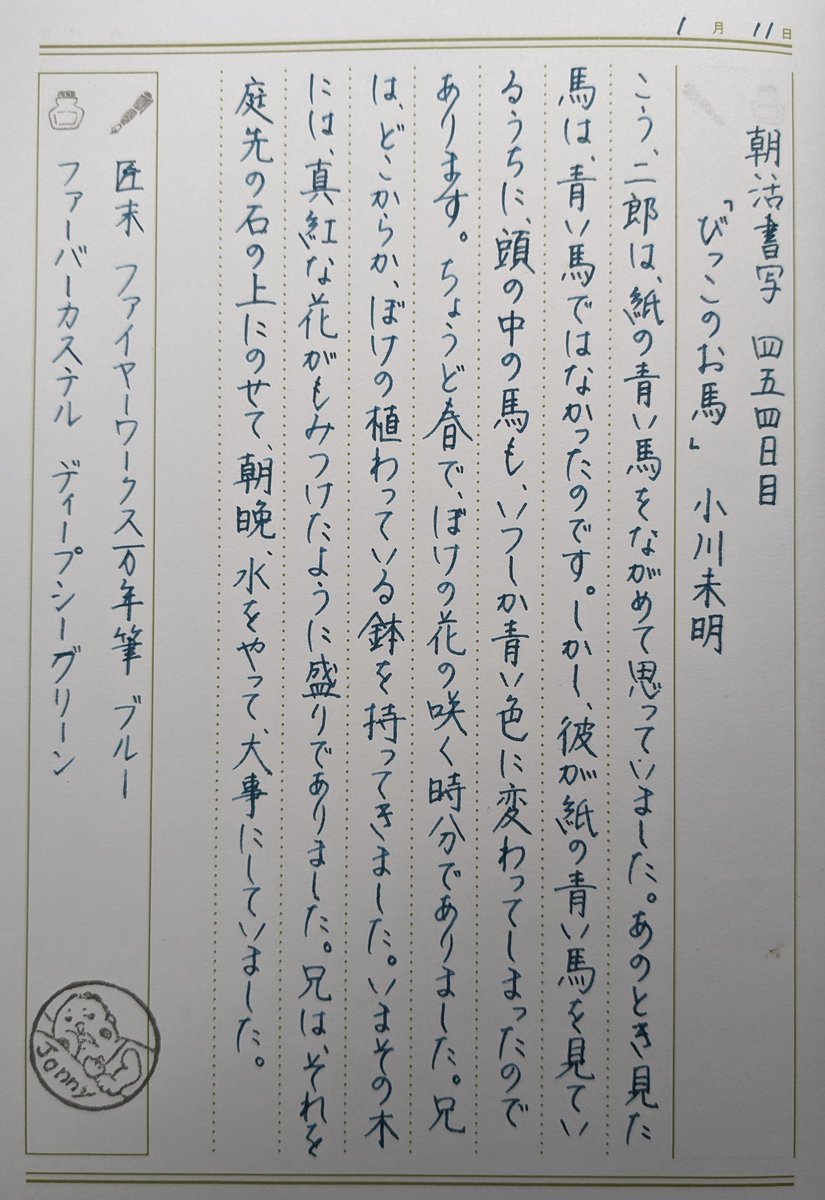 1月11日
朝活書写 四五四日目
「びっこのお馬」 小川未明
こう、二郎は、紙の青い馬をながめて思っていました。あのとき見た
馬は、青い馬ではなかったのです。しかし、彼が紙の青い馬を見てい
るうちに、頭の中の馬も、いつしか青い色に変わってしまったので
あります。ちょうど春で、ぼけの花の咲く時分でありました。兄
は、どこからか、ぼけの植わっている鉢を持ってきました。いまその木
には、真紅な花がもみつけたように盛りでありました。兄は、それを
庭先の石の上にのせて、朝晩、水をやって、大事にしていました。
匠末 ファイヤーワークス万年筆 ブルー
ファーバーカステル ディープシーグリーン
Jonny